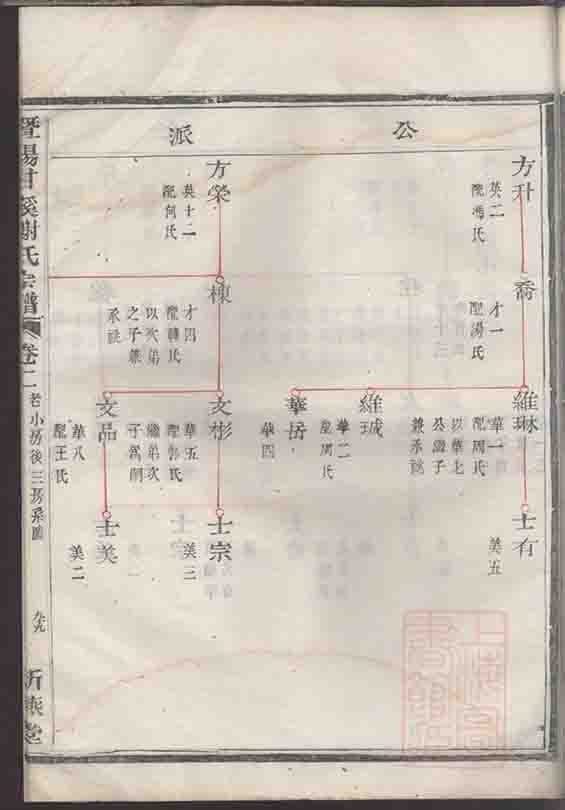 公派
方升
英二
配馮氏
喬
才一
配湯氏
維琳
華一
配周氏
以華七
公繼子
兼承祧
士有
美五
維珹
華二
配周氏
華岳
華四
方榮
英十二
配何氏
棟
才四
配韓氏
以次弟
之子兼
承祧
文彬
華五
繼弟次
子為嗣
士宗
美三
文品
華八
配王氏
士美
美二
暨陽甘溪謝氏宗譜
卷二
老小房後三房系圖
九九